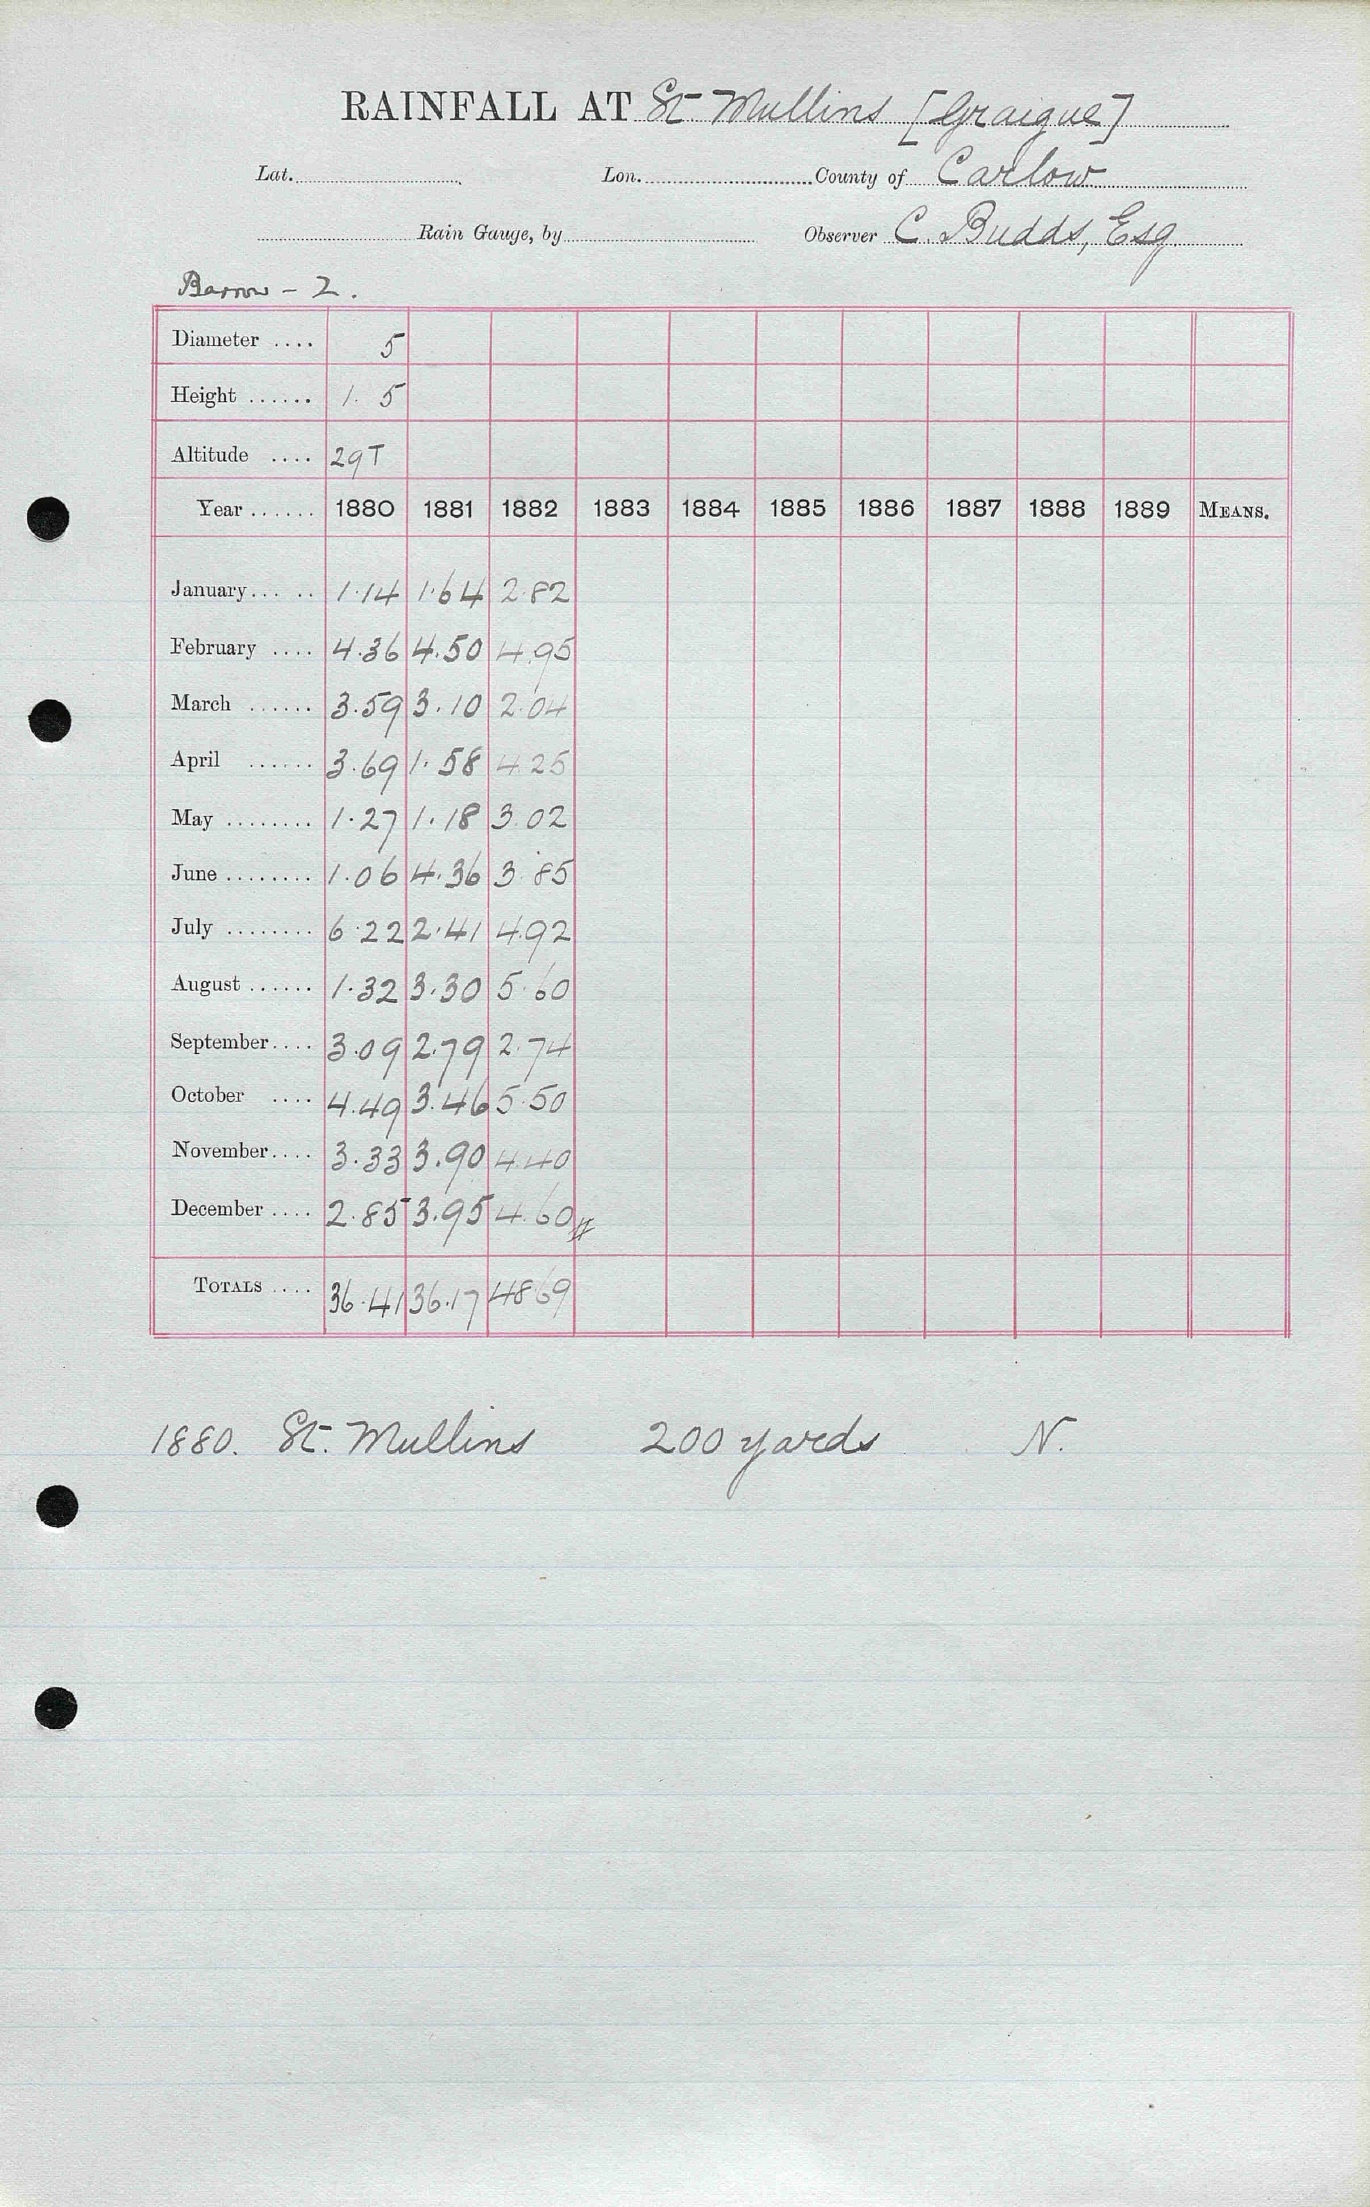 RAINFALL AT St. Mullins [Graigue]
Lat. Lon. County of Carlow
Rain Gauge, by Observer C. Budds, Esq.
Barrow - 2.
Diameter .... 5
Height ...... 1. 5
Altitude .... 29T
Year ...... 1880 1881 1882 1883 1884 1885 1886 1887 1888 1889 MEANS.
January ... .. 1.14 1.64 2.82
February .... 4.36 4.50 4.95
March ...... 3.59 3.10 2.04
April ...... 3.69 1.58 4.25
May ........ 1.27 1.18 3.02
June ........ 1.06 4.36 3.85
July ........ 6.22 2.41 4.92
August ...... 1.32 3.30 5.60
September .... 3.09 2.79 2.74
October .... 4.49 3.46 5.50
November .... 3.33 3.90 4.40
December .... 2.85 3.95 4.60
TOTALS .... 36.41 36.17 48.69
1880. St. Mullins 200 yards N.